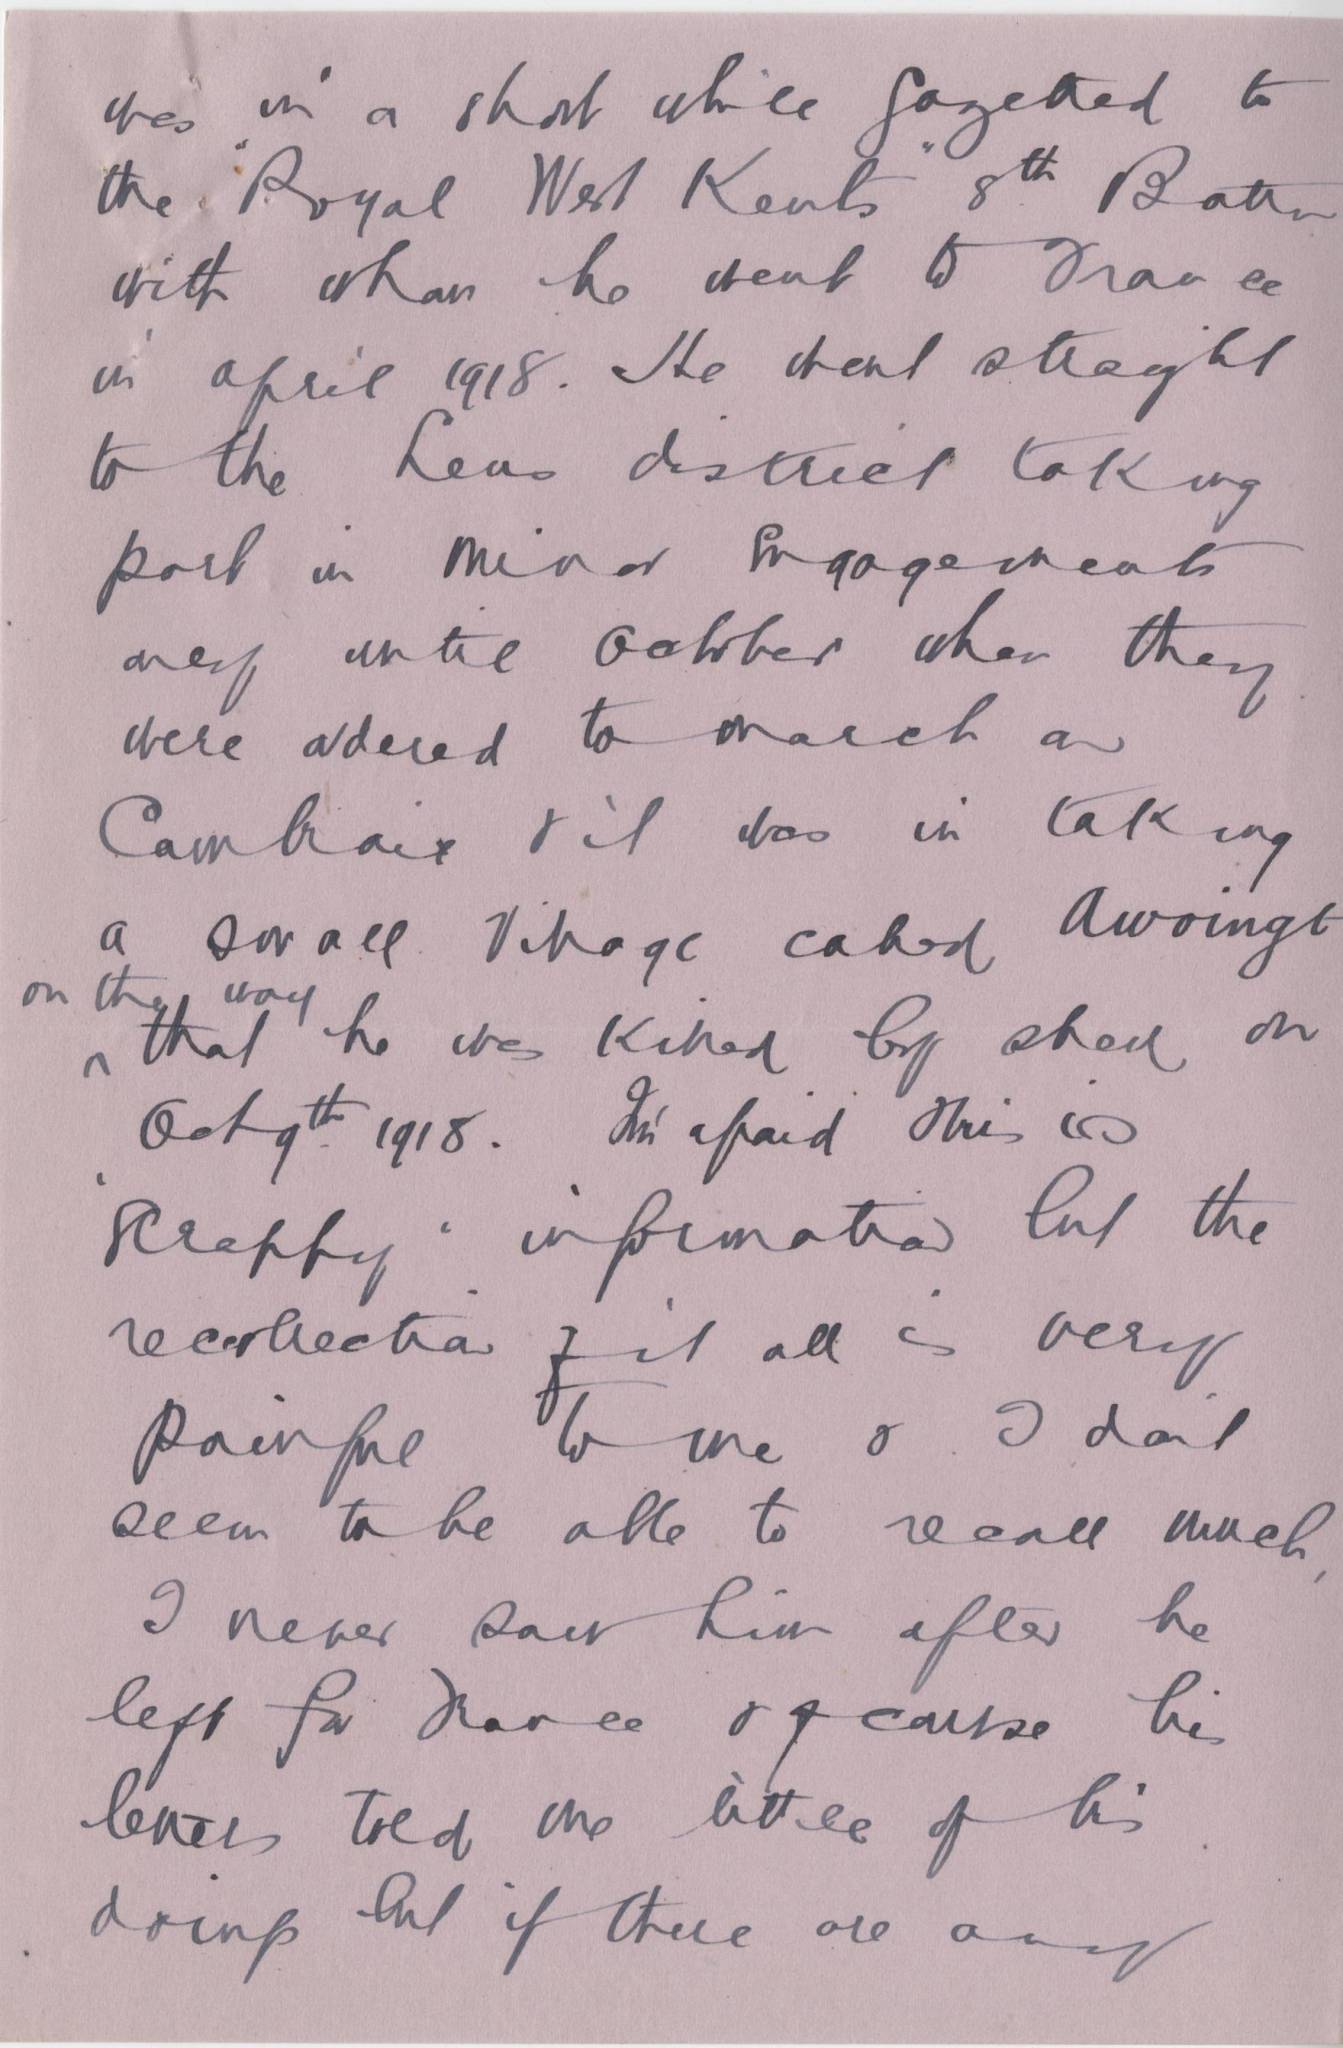 was in a short while gazetted to
the "Royal West Kents" 8th Battn
with whom he went to France
in april 1918. He went straight
to the Lens district taking
part in minor Engagements
only until October when they
were ordered to march on
Cambraix & it was in taking
a small Village called Awoingt
on the way
^ that he was killed by shell on
Oct 9th 1918. I'm afraid this is
"scrappy" information but the
recollection of it all is very
painful to me & I don't
seem to be able to recall much,
I never saw him after he
left for France & of course his
letters told me little of his
doings but if there are any